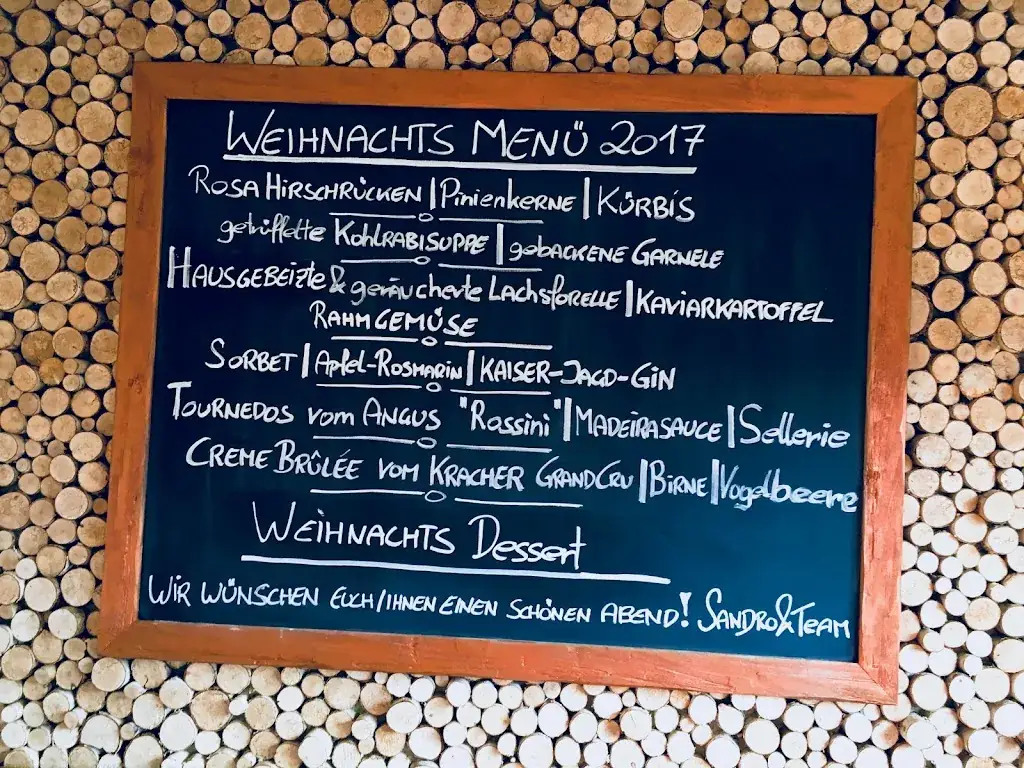 WEIHNACHTS MENÜ 2017
ROSA HIRSCHRÜCKEN | PINIENKERNE | KÜRBIS
getrüffelte KOHLRABISUPPE | gebackene GARNELE
HAUSGEBEIZTE & geräucherte LACHSFORELLE | KAVIARKARTOFFEL
RAHMGEMÜSE
SORBET | APFEL-ROSMARIN | KAISER-JAGD-GIN
TOURNEDOS VOM ANGUS "Rossini" | MADEIRASAUCE | Sellerie
CREME BRÛLÉE VOM KRACHER GRAND CRU | BIRNE | Vogelbeere
WEIHNACHTS Dessert
WIR WÜNSCHEN EUCH/IHNEN EINEN SCHÖNEN ABEND! SANDRO & TEAM